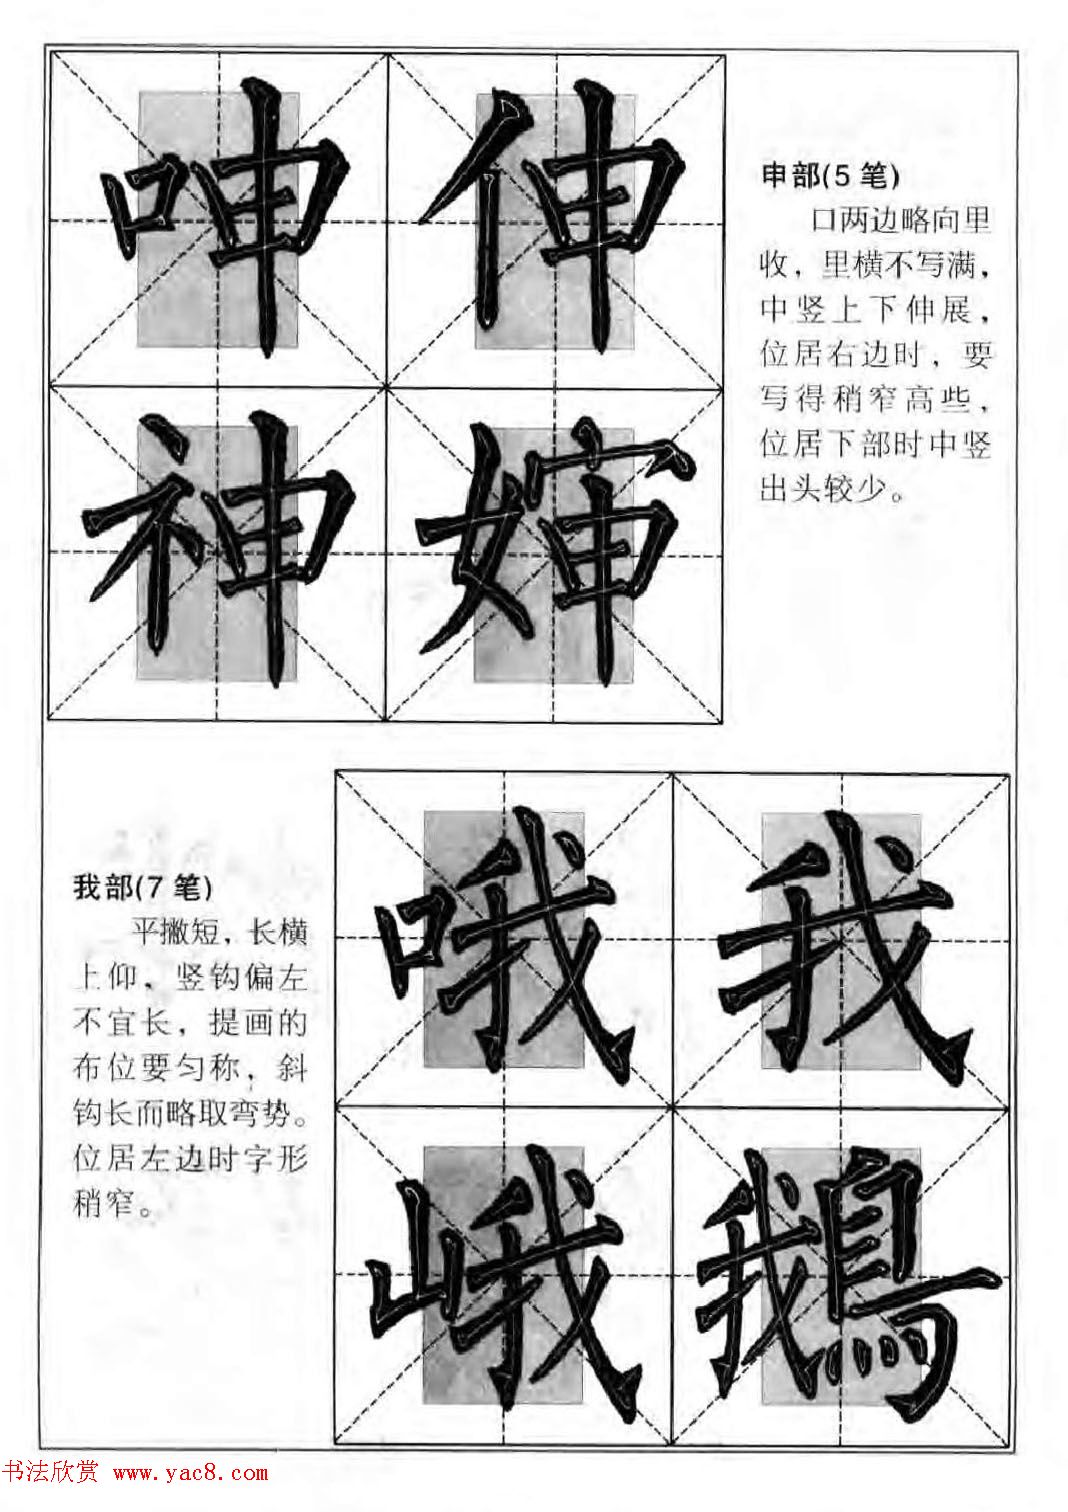 呻伸
申部(5笔)
口两边略向里
收，里横不写满，
中竖上下伸展，
位居右边时，要
写得稍窄高些，
位居下部时中竖
出头较少。
神婶
哦我
我部(7笔)
平撇短，长横
上仰，竖钩偏左
不宜长，提画的
布位要匀称，斜
钩长而略取弯势。
位居左边时字形
稍窄。
峨鵝
书法欣赏 www.yac8.com